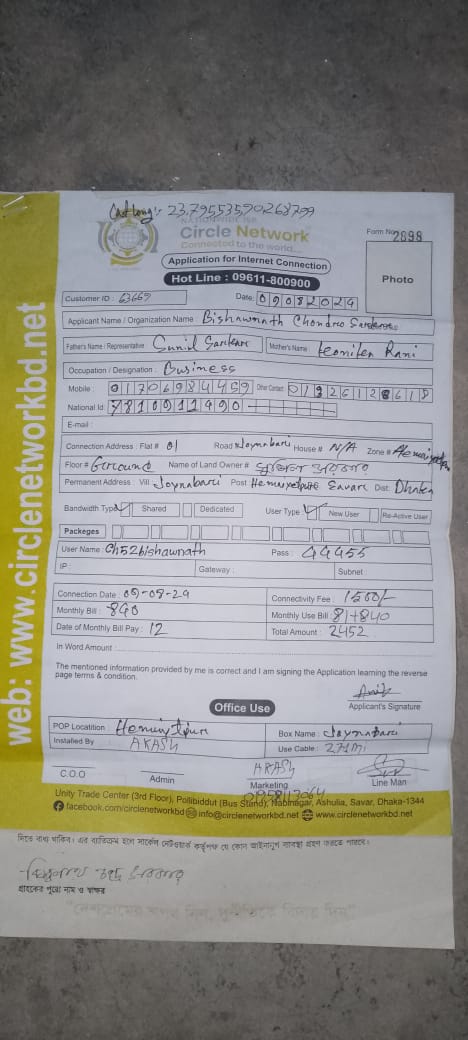 Lat long: 23.79553590268799
Circle Network
Connected to the world....
Form No: 2698
Application for Internet Connection
Hot Line : 09611-800900
Photo
Customer ID : 63669
Date: 09082024
Applicant Name / Organization Name Bishawnath Chondro
Father's Name / Representative Sunil Sarekare
Mother's Name Rani
Occupation / Designation : Business
Mobile : 01706984459 Other Contact
National Id : 7810911490
E-mail :
Connection Address : Flat # 01 Road Joynabari House # N/A Zone #
Floor # Ground Name of Land Owner #
Permanent Address Vill Joynabari Post: Savare Dist: Dhaka
Bandwidth Type Shared Dedicated User Type New User Re-Active User
Packeges
User Name: Ch52bishawnath Pass: 44455
IP : Gateway : Subnet :
Connection Date : 09-08-24
Connectivity Fee : 1500/-
Monthly Bill : 840
Monthly Use Bill : 81+840
Date of Monthly Bill Pay : 12
Total Amount : 2452
In Word Amount :
The mentioned information provided by me is correct and I am signing the Application learning the reverse
page terms & condition.
Applicant's Signature
Office Use
POP Locatition :
Box Name : Joynabari
Installed By AKASH
Use Cable : 271Mi
AKASH
C.O.O Admin Marketing Line Man
Unity Trade Center (3rd Floor), Pollibiddut (Bus Stand), Nabinagar, Ashulia, Savar, Dhaka-1344
facebook.com/circlenetworkbd info@circlenetworkbd.net www.circlenetworkbd.net
web: www.circlenetworkbd.net
দিতে বাধ্য থাকিব। এর ব্যতিক্রম হলে সার্কেল নেটওয়ার্ক কর্তৃপক্ষ যে কোন আইনানুগ ব্যবস্থা গ্রহণ করতে পারবে।
গ্রাহকের পুরো নাম ও স্বাক্ষর